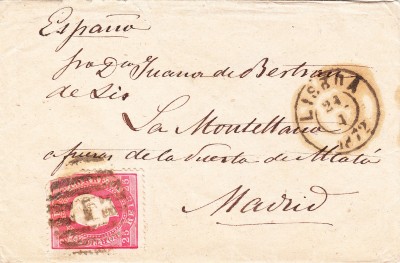 España
Sra Da Juana de Bertran
de Lis
La Montellano
afueras de la Puerta de Atalá
Madrid
LISBOA
24
1
25 REIS